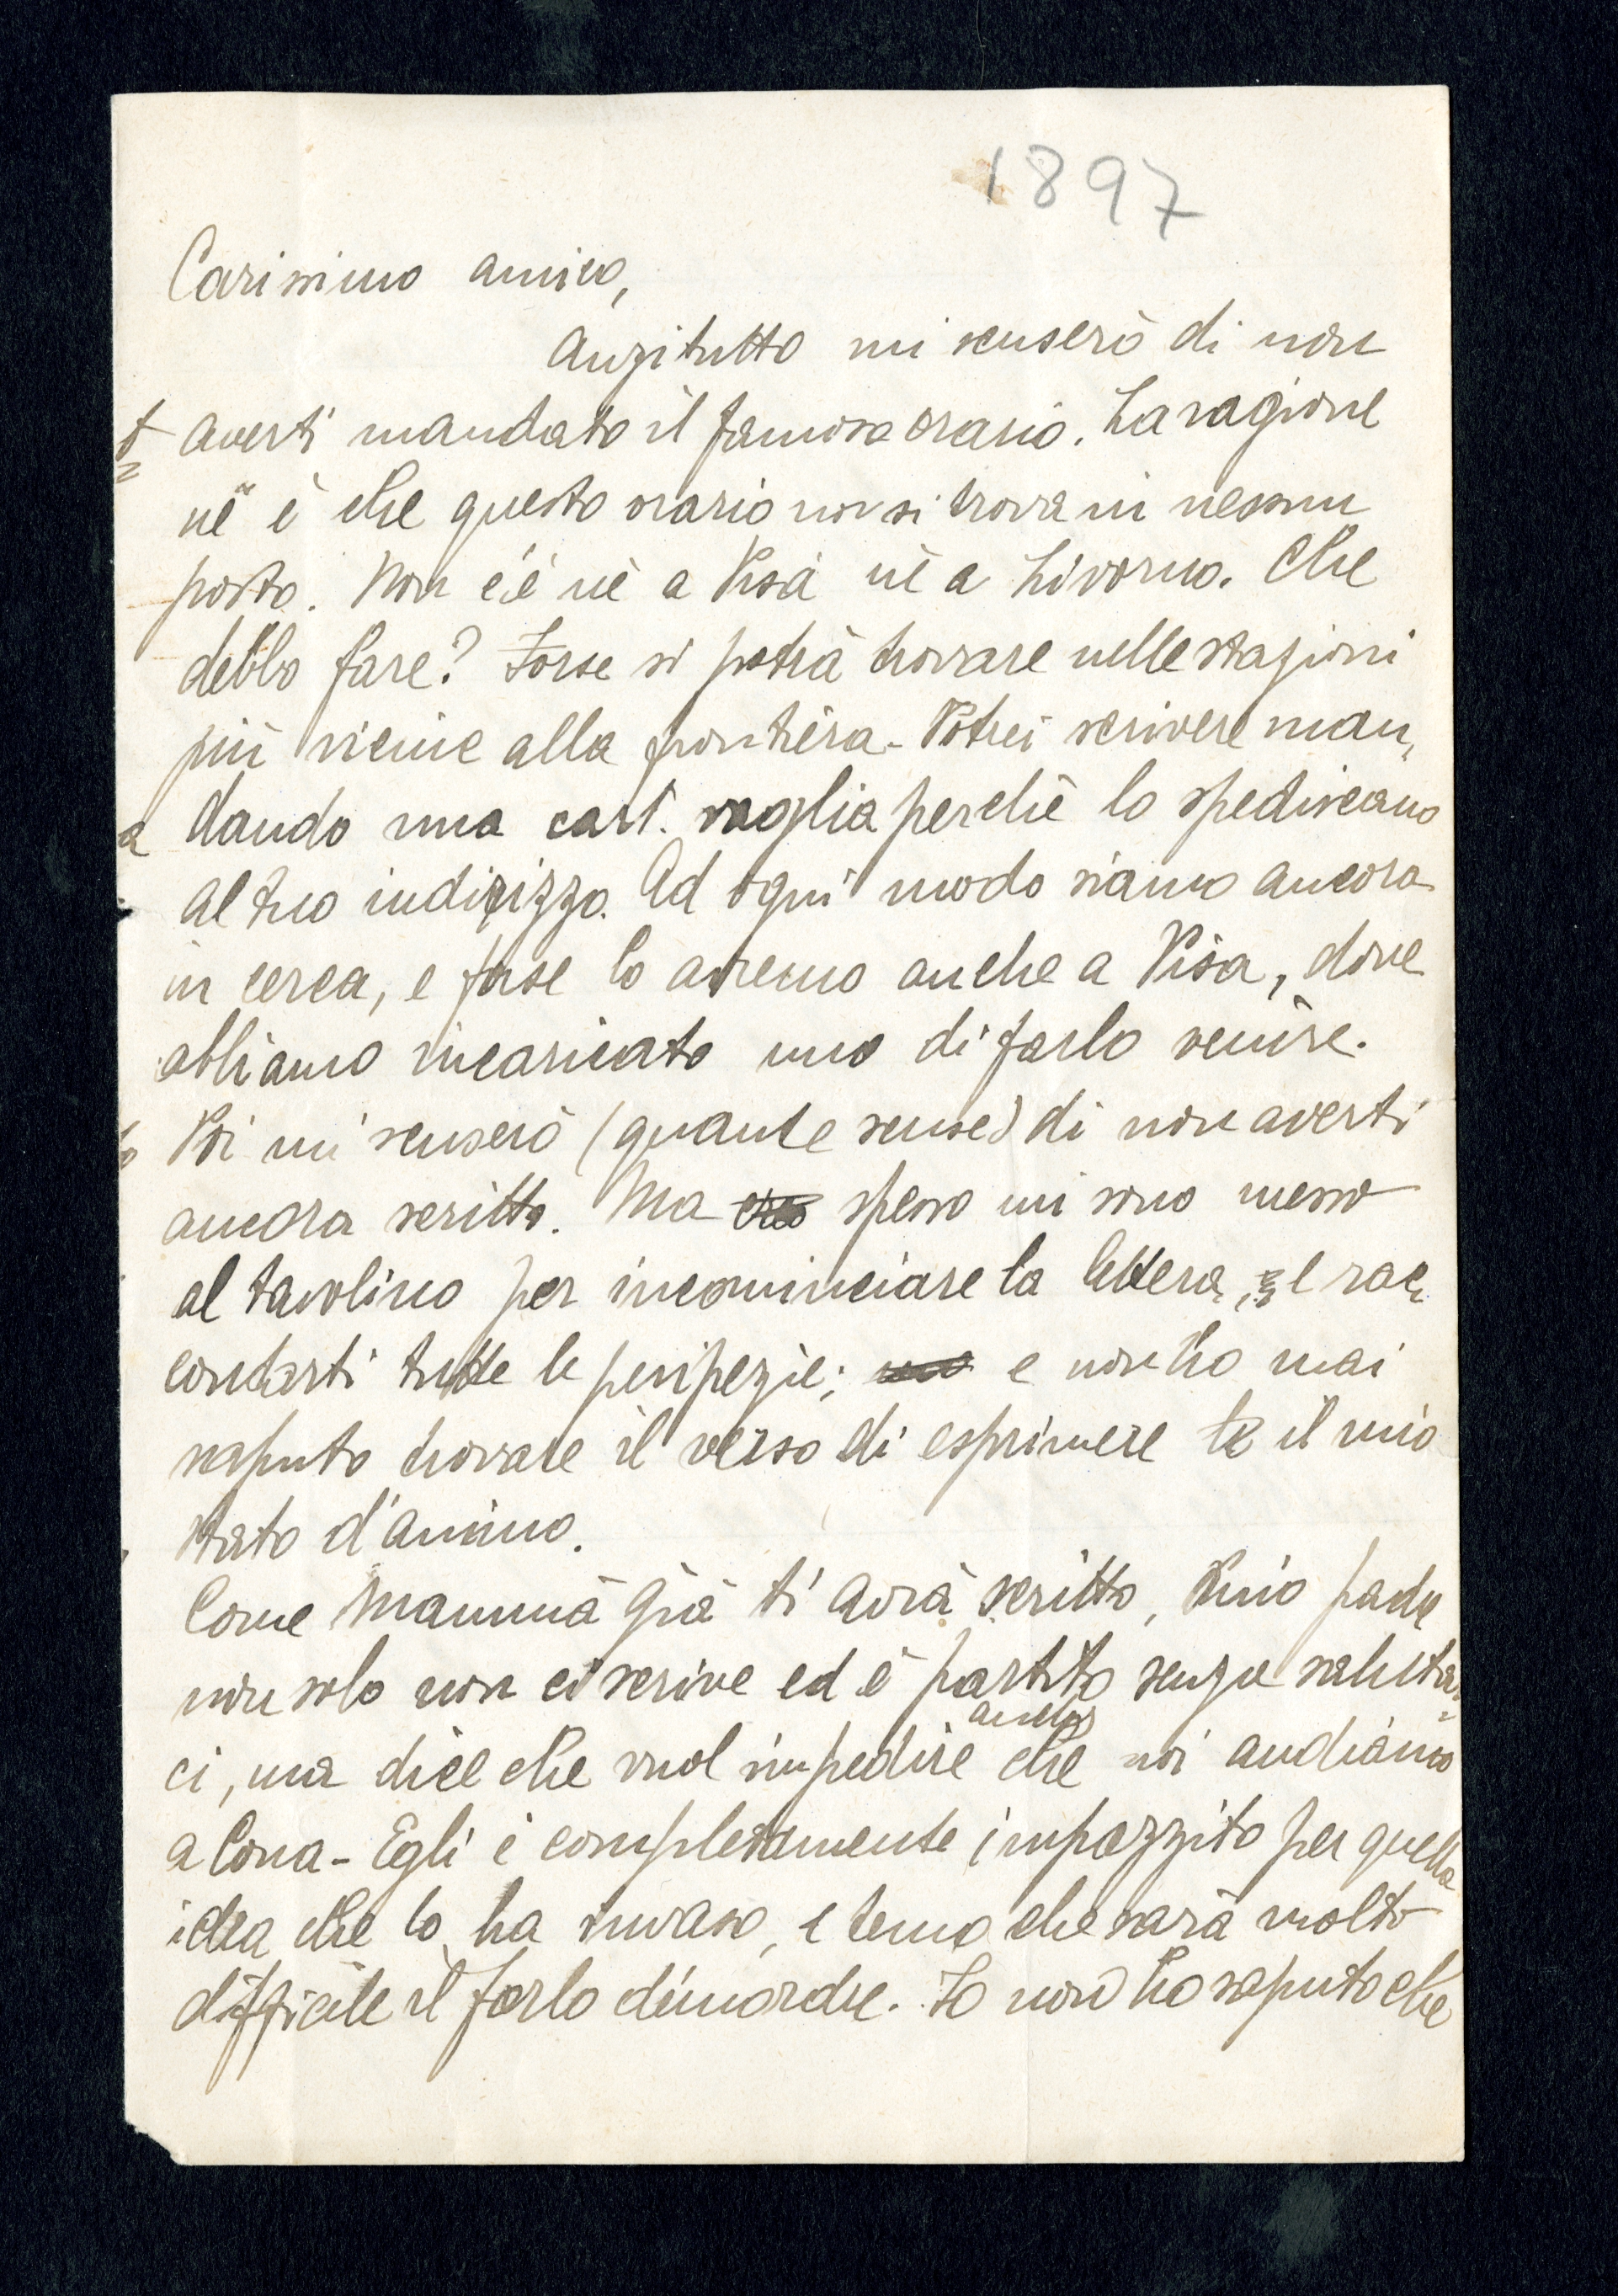 1897
Carissimo amico,
Anzitutto mi scuserò di non
averti mandato il famoso orario. La ragione
ne è che questo orario non si trova in nessun
posto. Non c'è nè a Pisa nè a Livorno. Che
debbo fare? Forse si potrà trovare nelle stazioni
più vicine alla frontiera - Potrei scrivere man„
dando una cart. vaglia perchè lo spediscano
al tuo indirizzo. Ad ogni modo siamo ancora
in cerca, e forse lo avremo anche a Pisa, dove
abbiamo incaricato uno di farlo venire.
Poi mi scuserò (quante scuse) di non averti
ancora scritto. Ma spesso mi sono messo
al tavolino per incominciare la lettera, e rac„
contarti tutte le peripezie; e non ho mai
saputo trovare il verso di esprimere il mio
stato d'animo.
Come Mammà già ti avrà scritto, mio padre
non solo non ci scrive ed è partito senza saluta„
ci, ma dice che vuol impedire anche che noi andiamo
a Cona - Egli è completamente impazzito per quella
idea che lo ha invaso, e temo che sarà molto
difficile il farlo dimordre. Io non ho saputo che